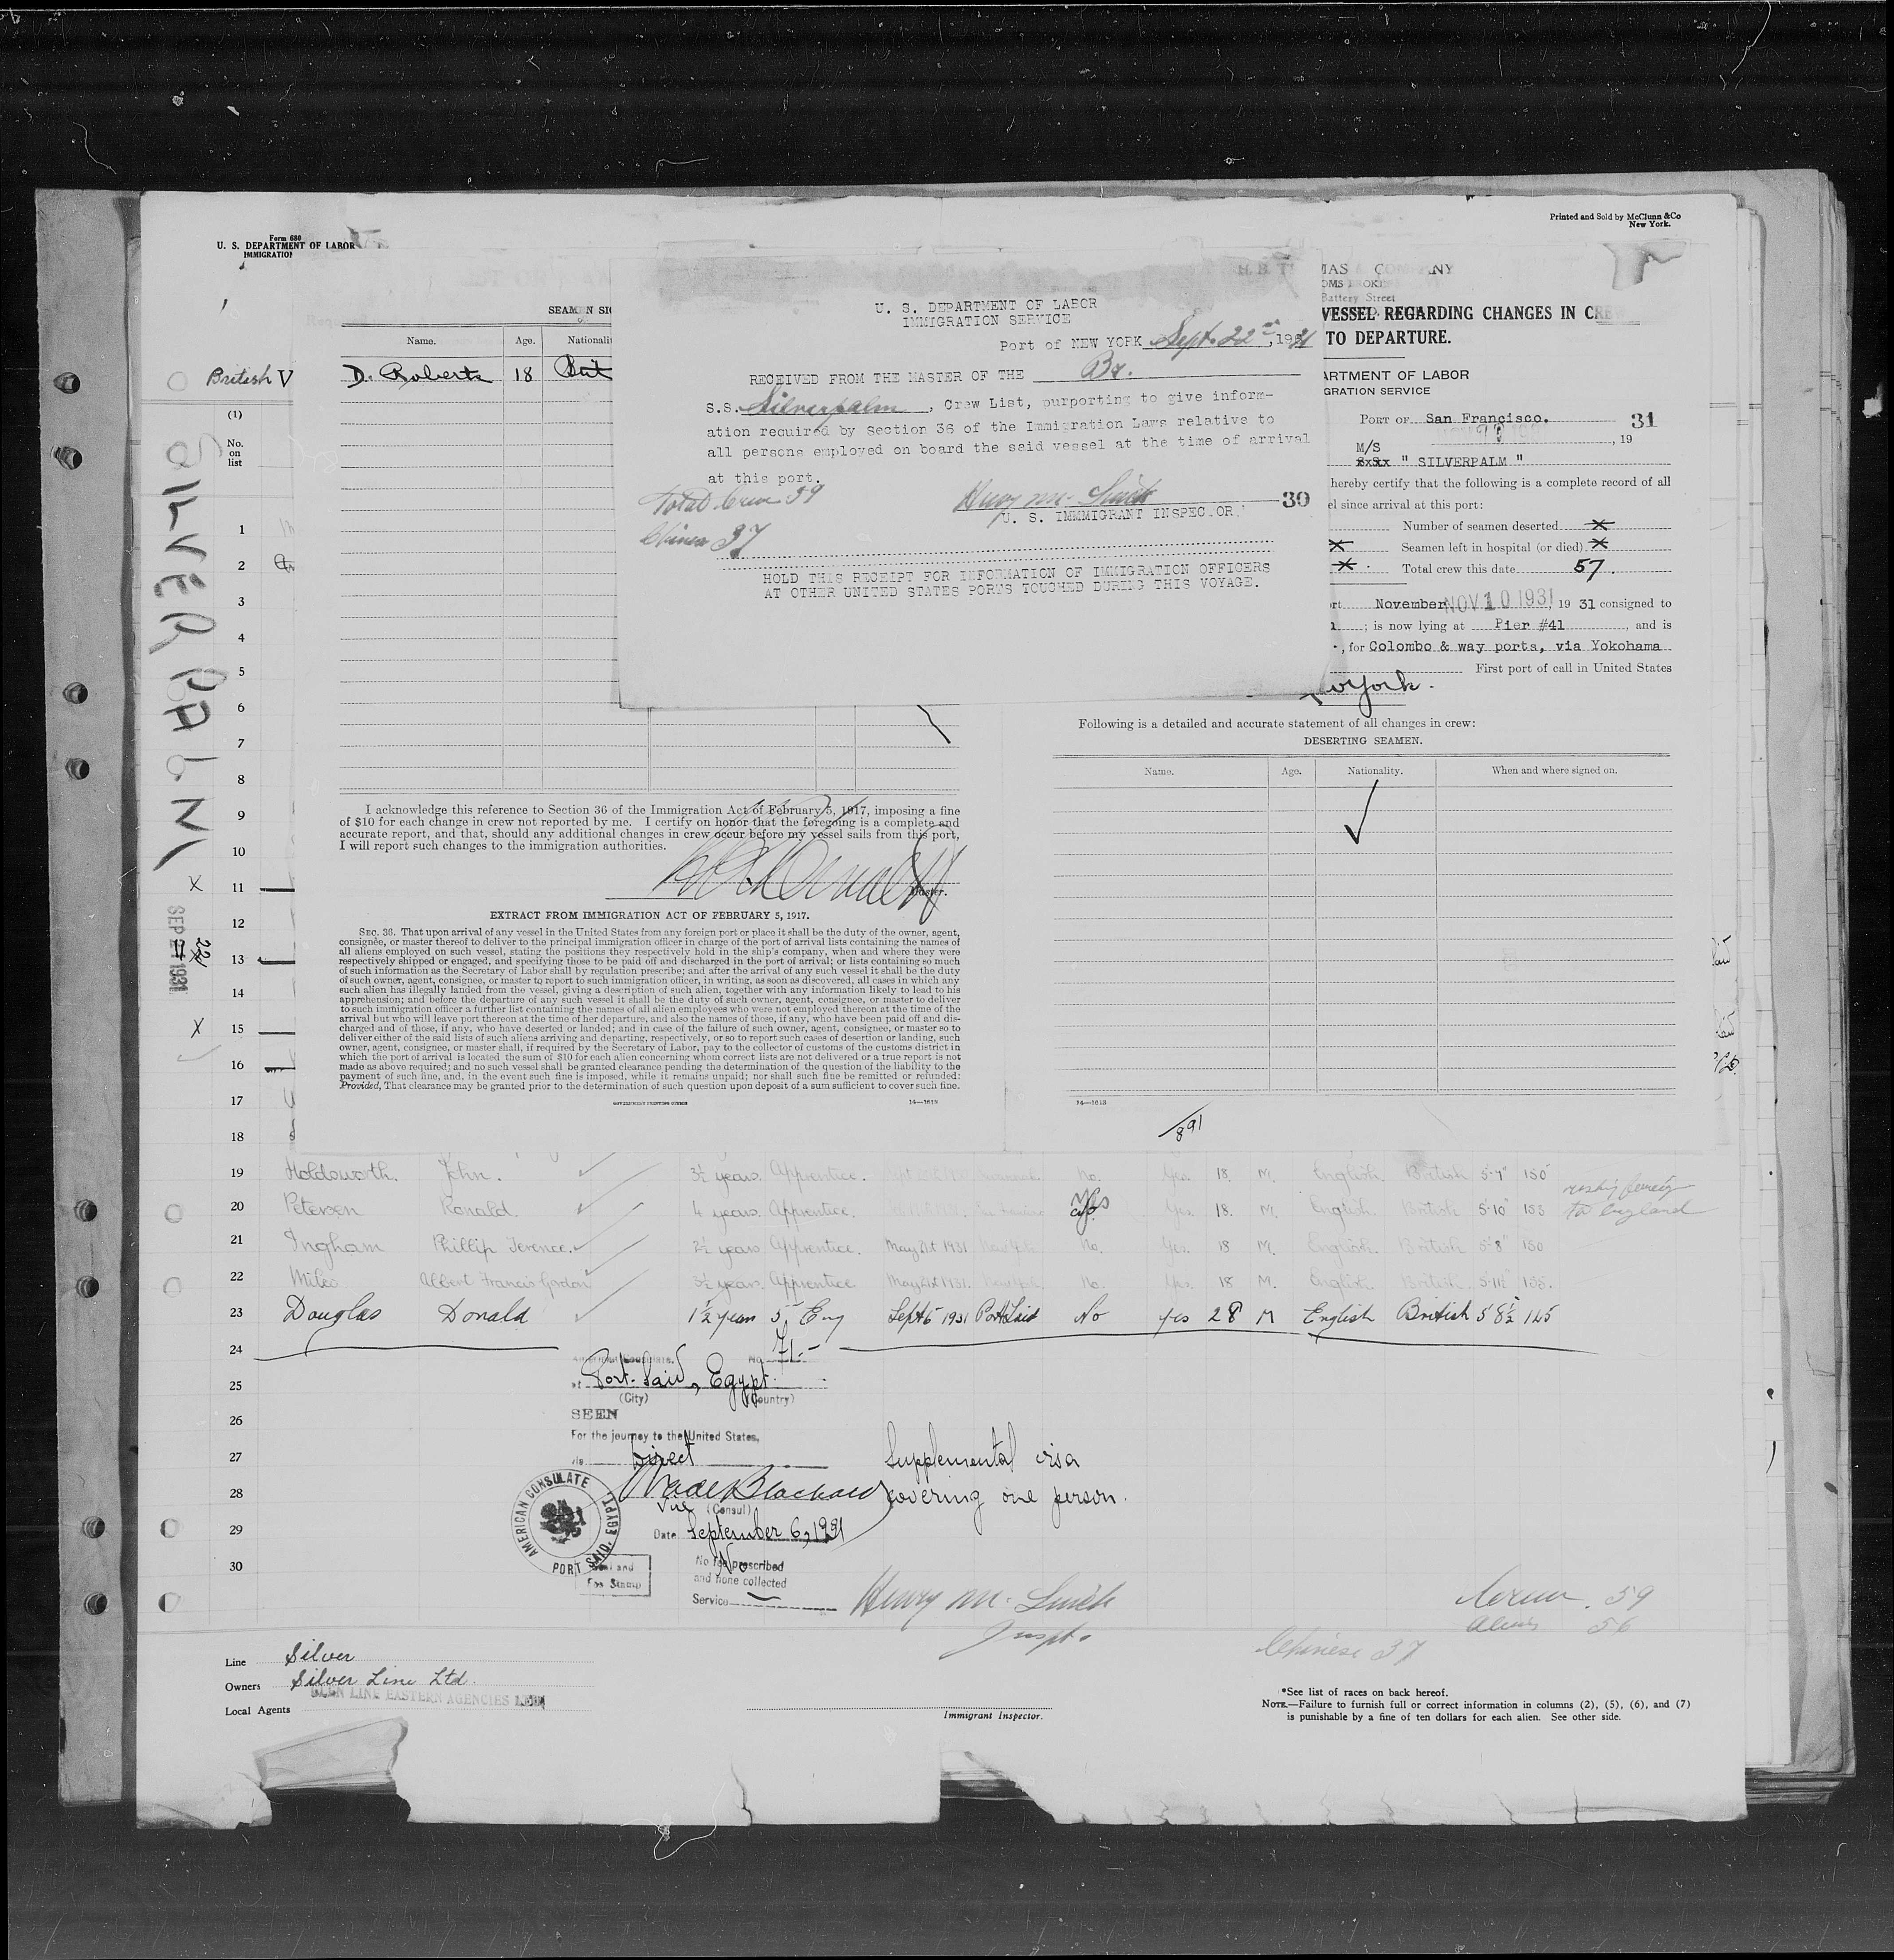 Printed and Sold by McClunn & Co
New York.
Form 680
U. S. DEPARTMENT OF LABOR
IMMIGRATION
British V
(1)
No.
on
list
SILVERPALM
SEP 1931
22d
1
2
3
4
5
6
7
8
9
10
X 11
12
13
14
X 15
16
17
18
SEAMEN SIG
Name. Age. Nationalit
D. Roberts 18 Brit
I acknowledge this reference to Section 36 of the Immigration Act of February 5, 1917, imposing a fine
of $10 for each change in crew not reported by me. I certify on honor that the foregoing is a complete and
accurate report, and that, should any additional changes in crew occur before my vessel sails from this port,
I will report such changes to the immigration authorities.
Master.
EXTRACT FROM IMMIGRATION ACT OF FEBRUARY 5, 1917.
SEC. 36. That upon arrival of any vessel in the United States from any foreign port or place it shall be the duty of the owner, agent,
consignee, or master thereof to deliver to the principal immigration officer in charge of the port of arrival lists containing the names of
all aliens employed on such vessel, stating the positions they respectively hold in the ship's company, when and where they were
respectively shipped or engaged, and specifying those to be paid off and discharged in the port of arrival; or lists containing so much
of such information as the Secretary of Labor shall by regulation prescribe; and after the arrival of any such vessel it shall be the duty
of such owner, agent, consignee, or master to report to such immigration officer, in writing, as soon as discovered, all cases in which any
such alien has illegally landed from the vessel, giving a description of such alien, together with any information likely to lead to his
apprehension; and before the departure of any such vessel it shall be the duty of such owner, agent, consignee, or master to deliver
to such immigration officer a further list containing the names of all alien employees who were not employed thereon at the time of the
arrival but who will leave port thereon at the time of her departure, and also the names of those, if any, who have been paid off and dis-
charged and of those, if any, who have deserted or landed; and in case of the failure of such owner, agent, consignee, or master so to
deliver either of the said lists of such aliens arriving and departing, respectively, or so to report such cases of desertion or landing, such
owner, agent, consignee, or master shall, if required by the Secretary of Labor, pay to the collector of customs of the customs district in
which the port of arrival is located the sum of $10 for each alien concerning whom correct lists are not delivered or a true report is not
made as above required; and no such vessel shall be granted clearance pending the determination of the question of the liability to the
payment of such fine, and, in the event such fine is imposed, while it remains unpaid; nor shall such fine be remitted or refunded:
Provided, That clearance may be granted prior to the determination of such question upon deposit of a sum sufficient to cover such fine.
GOVERNMENT PRINTING OFFICE 14—1613
H. B. T
U. S. DEPARTMENT OF LABOR
IMMIGRATION SERVICE
Port of NEW YORK Sept. 22nd, 1931
RECEIVED FROM THE MASTER OF THE Br.
S.S. Silverpalm, Crew List, purporting to give inform-
ation required by Section 36 of the Immigration Laws relative to
all persons employed on board the said vessel at the time of arrival
at this port.
Total Crew 59
Henry Mc. Smith 30
U. S. IMMMIGRANT INSPECTOR
Chinese 37
HOLD THIS RECEIPT FOR INFORMATION OF IMMIGRATION OFFICERS
AT OTHER UNITED STATES PORTS TOUCHED DURING THIS VOYAGE.
MAS COMPANY
OMS BROKE
Battery Street
VESSEL REGARDING CHANGES IN CREW
TO DEPARTURE.
ARTMENT OF LABOR
GRATION SERVICE
PORT OF San Francisco. 31
, 19
M/S
" SILVERPALM "
hereby certify that the following is a complete record of all
el since arrival at this port:
Number of seamen deserted X
X Seamen left in hospital (or died) X
X Total crew this date 57
rt November NOV 10 1931, 19 31 consigned to
; is now lying at Pier #41, and is
, for Colombo & way ports, via Yokohama
First port of call in United States
w York.
Following is a detailed and accurate statement of all changes in crew:
DESERTING SEAMEN.
Name. Age. Nationality. When and where signed on.
14—1613
891
19 Holdsworth. John. 3½ years. Apprentice. No. Yes. 18. M. English. British 5-7" 150
20 Petersen Ronald. 4 years. Apprentice. Yes Yes. 18. M. English. British 5-10" 153
to England
21 Ingham Phillip Terence. 2½ years Apprentice. May 21st 1931 New York. No. Yes. 18 M. English. British 5-8" 150
22 Miles Albert Francis Gordon 3½ years. Apprentice May 21st 1931. New York No. Yes. 18 M. English. British 5-11½" 155.
23 Douglas Donald 1½ years 5 Eng Sept 6 1931 Port Said No Yes 28 M English British 5 8½ 145
24
25
26
27
28
29
30
No. 71.-
at Port Said, Egypt.
(City) (Country)
SEEN
For the journey to the United States,
via Direct
Vice (Consul)
Date September 6, 1931
AMERICAN CONSULATE
PORT SAID, EGYPT.
Seal and
Fee Stamp
No fee prescribed
and none collected
Service
Supplemental visa
covering one person.
Henry Mc. Smith
Inspt.
Crew. 59
Aliens 56
Chinese 37
Line Silver
Owners Silver Line Ltd.
GLEN LINE EASTERN AGENCIES LTD
Local Agents
Immigrant Inspector.
*See list of races on back hereof.
NOTE.—Failure to furnish full or correct information in columns (2), (5), (6), and (7)
is punishable by a fine of ten dollars for each alien. See other side.